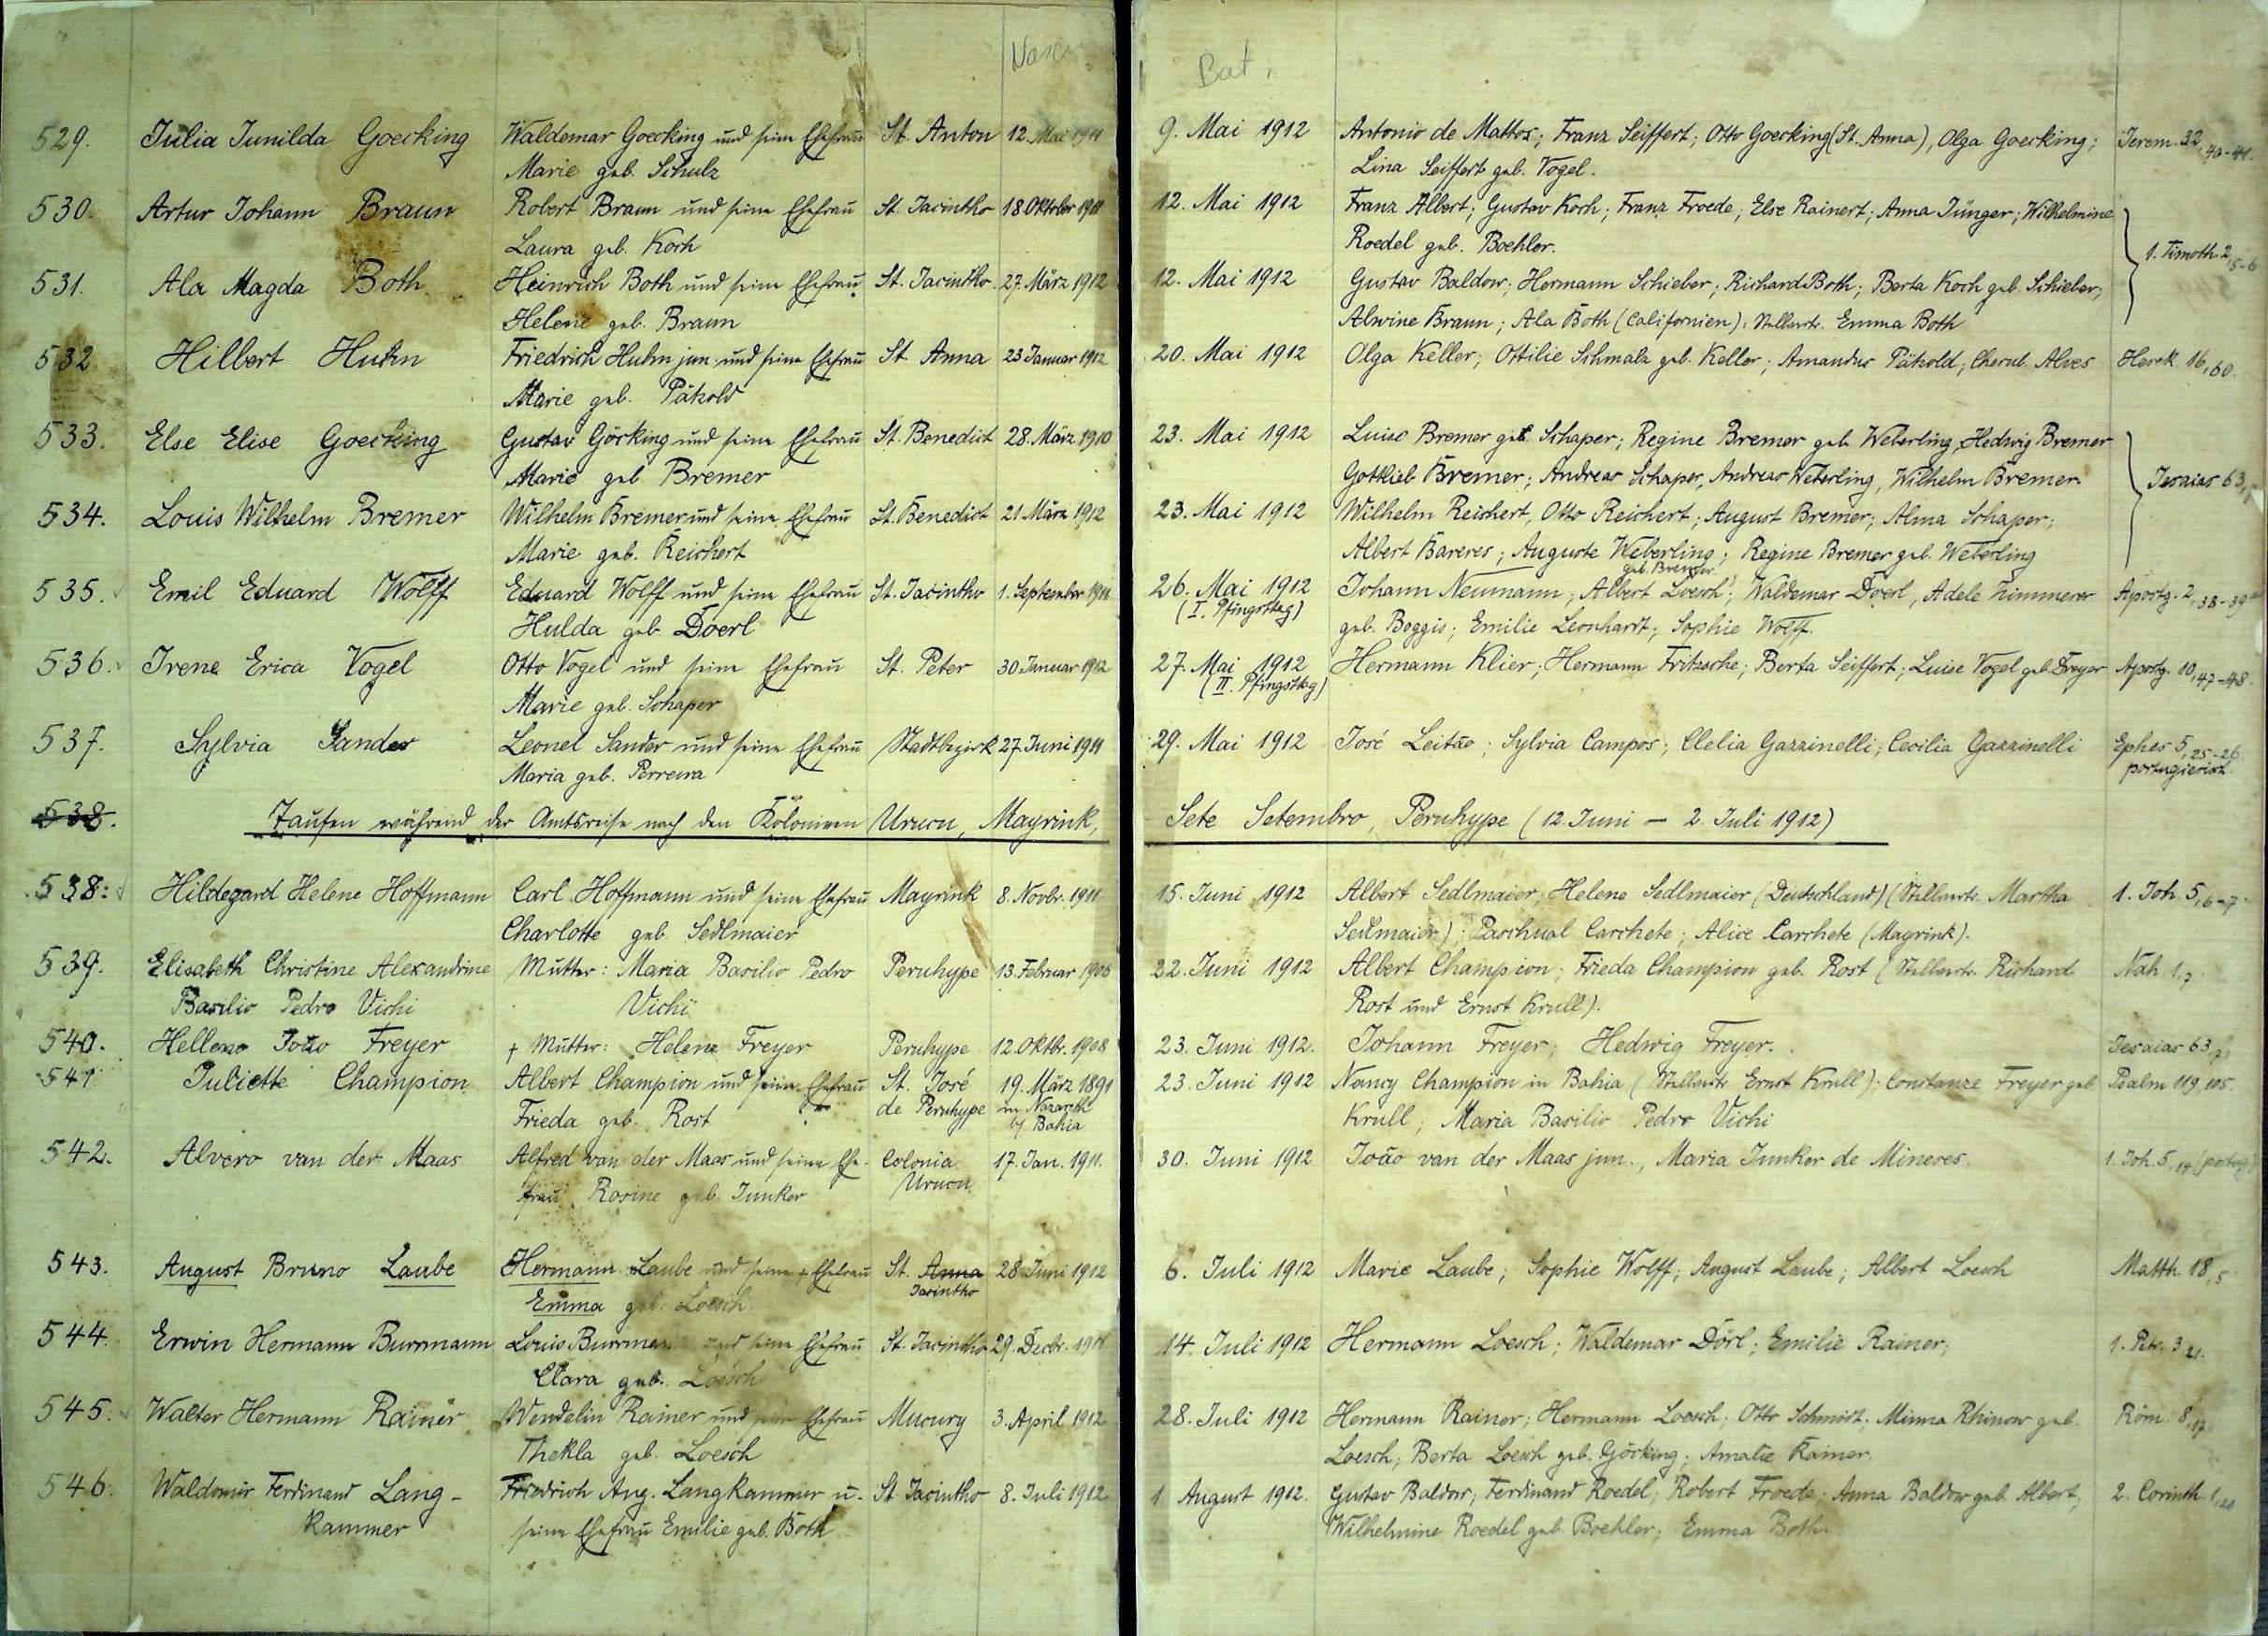 Bat.
529. Julia Junilda Goecking Waldemar Goecking und seine Ehefrau St. Anton 12. Mai 1911 9. Mai 1912 Antonio de Mattos; Franz Seiffert; Otto Goecking (St. Anna), Olga Goecking; Jerem. 32, 40-41.
Marie geb. Schulz Lina Seiffert geb. Vogel.
530. Artur Johann Braun Robert Braun und seine Ehefrau St. Jacintho 18. Oktober 1911 12. Mai 1912 Franz Albert; Gustav Koch; Franz Froede; Else Rainert; Anna Jünger; Wilhelmine
Laura geb. Koch Roedel geb. Boehler. 1. Timoth. 2, 5-6
531. Ala Magda Both Heinrich Both und seine Ehefrau St. Jacintho. 27. März 1912 12. Mai 1912 Gustav Baldow; Hermann Schieber; Richard Both; Berta Koch geb. Schieber;
Helene geb. Braun Alwine Braun; Ala Both (Californien): Stellvertr. Emma Both
532 Hilbert Huhn Friedrich Huhn jun. und seine Ehefrau St. Anna 23 Januar 1912 20. Mai 1912 Olga Keller; Ottilie Schmalz geb. Keller; Amandus Pätzold; Cherub. Alves Hesek. 16, 60.
Marie geb. Pätzold
533. Else Elise Goecking Gustav Göcking und seine Ehefrau St. Benedict 28. März 1910 23. Mai 1912 Luise Bremer geb. Schaper; Regine Bremer geb. Weberling, Hedwig Bremer
Marie geb. Bremer Gottlieb Bremer; Andreas Schaper, Andreas Weberling, Wilhelm Bremer. Jesaias 63,
534. Louis Wilhelm Bremer Wilhelm Bremer und seine Ehefrau St. Benedict 21. März 1912 23. Mai 1912 Wilhelm Reichert, Otto Reichert; August Bremer; Alma Schaper;
Marie geb. Reichert Albert Bareres; Auguste Weberling; Regine Bremer geb. Weberling
geb. Bremer
535. Emil Eduard Wolff Eduard Wolff und seine Ehefrau St. Jacintho 1. September 1911 26. Mai 1912 Johann Neumann; Albert Loesch; Waldemar Doerl, Adele Zimmerer Apostg. 2, 38-39
Hulda geb. Doerl (I. Pfingsttag) geb. Boggis; Emilie Leonhardt; Sophie Wolff.
536. Irene Erica Vogel Otto Vogel und seine Ehefrau St. Peter 30. Januar 1912 27. Mai 1912 Hermann Klier; Hermann Fritzsche; Berta Seiffert; Luise Vogel geb. Freyer Apostg. 10, 47-48.
Marie geb. Schaper (II. Pfingsttag)
537. Sylvia Sander Leonel Sander und seine Ehefrau Stadtbezirk 27. Juni 1911 29. Mai 1912 José Leitão; Sylvia Campos; Clelia Gazzinelli; Cecilia Gazzinelli Ephes 5, 25-26
Maria geb. Perreira portugiesisch.
538. Taufen während der Amtsreise nach den Kolonien Urucu, Mayrink, Sete Setembro, Peruhype (12. Juni - 2. Juli 1912)
538: Hildegard Helene Hoffmann Carl Hoffmann und seine Ehefrau Mayrink 8. Novbr. 1911 15. Juni 1912 Albert Sedlmaier; Helene Sedlmaier (Deutschland) (Stellvertr. Martha 1. Joh. 5, 6-7
Charlotte geb. Sedlmaier Sedlmaier); Paschual Carchete; Alice Carchete (Mayrink).
539. Elisabeth Christine Alexandrine Mutter: Maria Basilio Pedro Peruhype 13. Februar 1906 22. Juni 1912 Albert Champion; Frieda Champion geb. Rost (Stellvertr. Richard Nah 1, 7
Basilio Pedro Vichi Vichi Rost und Ernst Krull).
540. Helleno João Freyer + Mutter: Helene Freyer Peruhype 12. Oktbr. 1908 23. Juni 1912. Johann Freyer; Hedwig Freyer. Jesaias 63,
541. Juliette Champion Albert Champion und seine Ehefrau St. José 19. März 1891 23. Juni 1912 Nancy Champion in Bahia (Stellvertr. Ernst Krull): Constanze Freyer geb. Psalm 119, 105.
Frieda geb. Rost de Peruhype in Nazareth b/ Bahia Krull; Maria Basilio Pedro Vichi
542. Alvero van der Maas Alfred van der Maas und seine Ehe- Colonia 17. Jan. 1911. 30. Juni 1912 João van der Maas jun., Maria Junker de Mineres. 1. Joh. 5, 14 (portug.)
frau Rosine geb. Junker Urucu
543. August Bruno Laube Hermann Laube und seine + Ehefrau St. Anna 28. Juni 1912 6. Juli 1912 Marie Laube; Sophie Wolff; August Laube; Albert Loesch Matth 18, 5
Emma geb. Loesch Jacintho
544. Erwin Hermann Burmann Louis Burmann und seine Ehefrau St. Jacintho 29. Decbr. 1911 14. Juli 1912 Hermann Loesch; Waldemar Dörl; Emilie Rainer; 1. Petr. 3 21.
Clara geb. Loesch
545. Walter Hermann Rainer Wendelin Rainer und seine Ehefrau Mucury 3. April 1912 28. Juli 1912 Hermann Rainer; Hermann Loesch; Otto Schmidt; Minna Rhinow geb. Röm. 8, 17
Thekla geb. Loesch Loesch; Berta Loesch geb. Göcking; Amalie Rainer.
546. Waldomir Ferdinand Lang- Friedrich Aug. Langkammer u. St. Jacintho 8. Juli 1912 1 August 1912. Gustav Baldow; Ferdinand Roedel; Robert Froede; Anna Baldow geb. Albert; 2. Corinth. 1, 20
kammer seine Ehefrau Emilie geb. Both Wilhelmine Roedel geb. Boehler; Emma Both.